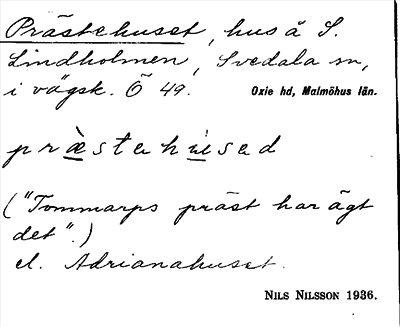 Prästehuset, hus å S.
Lindholmen, Svedala sn,
i vägsk. Ö 49. Oxie hd, Malmöhus län.
præstəhùsəd
("Tommarps präst har ägt
det".)
el. Adrianahuset.
NILS NILSSON 1936.